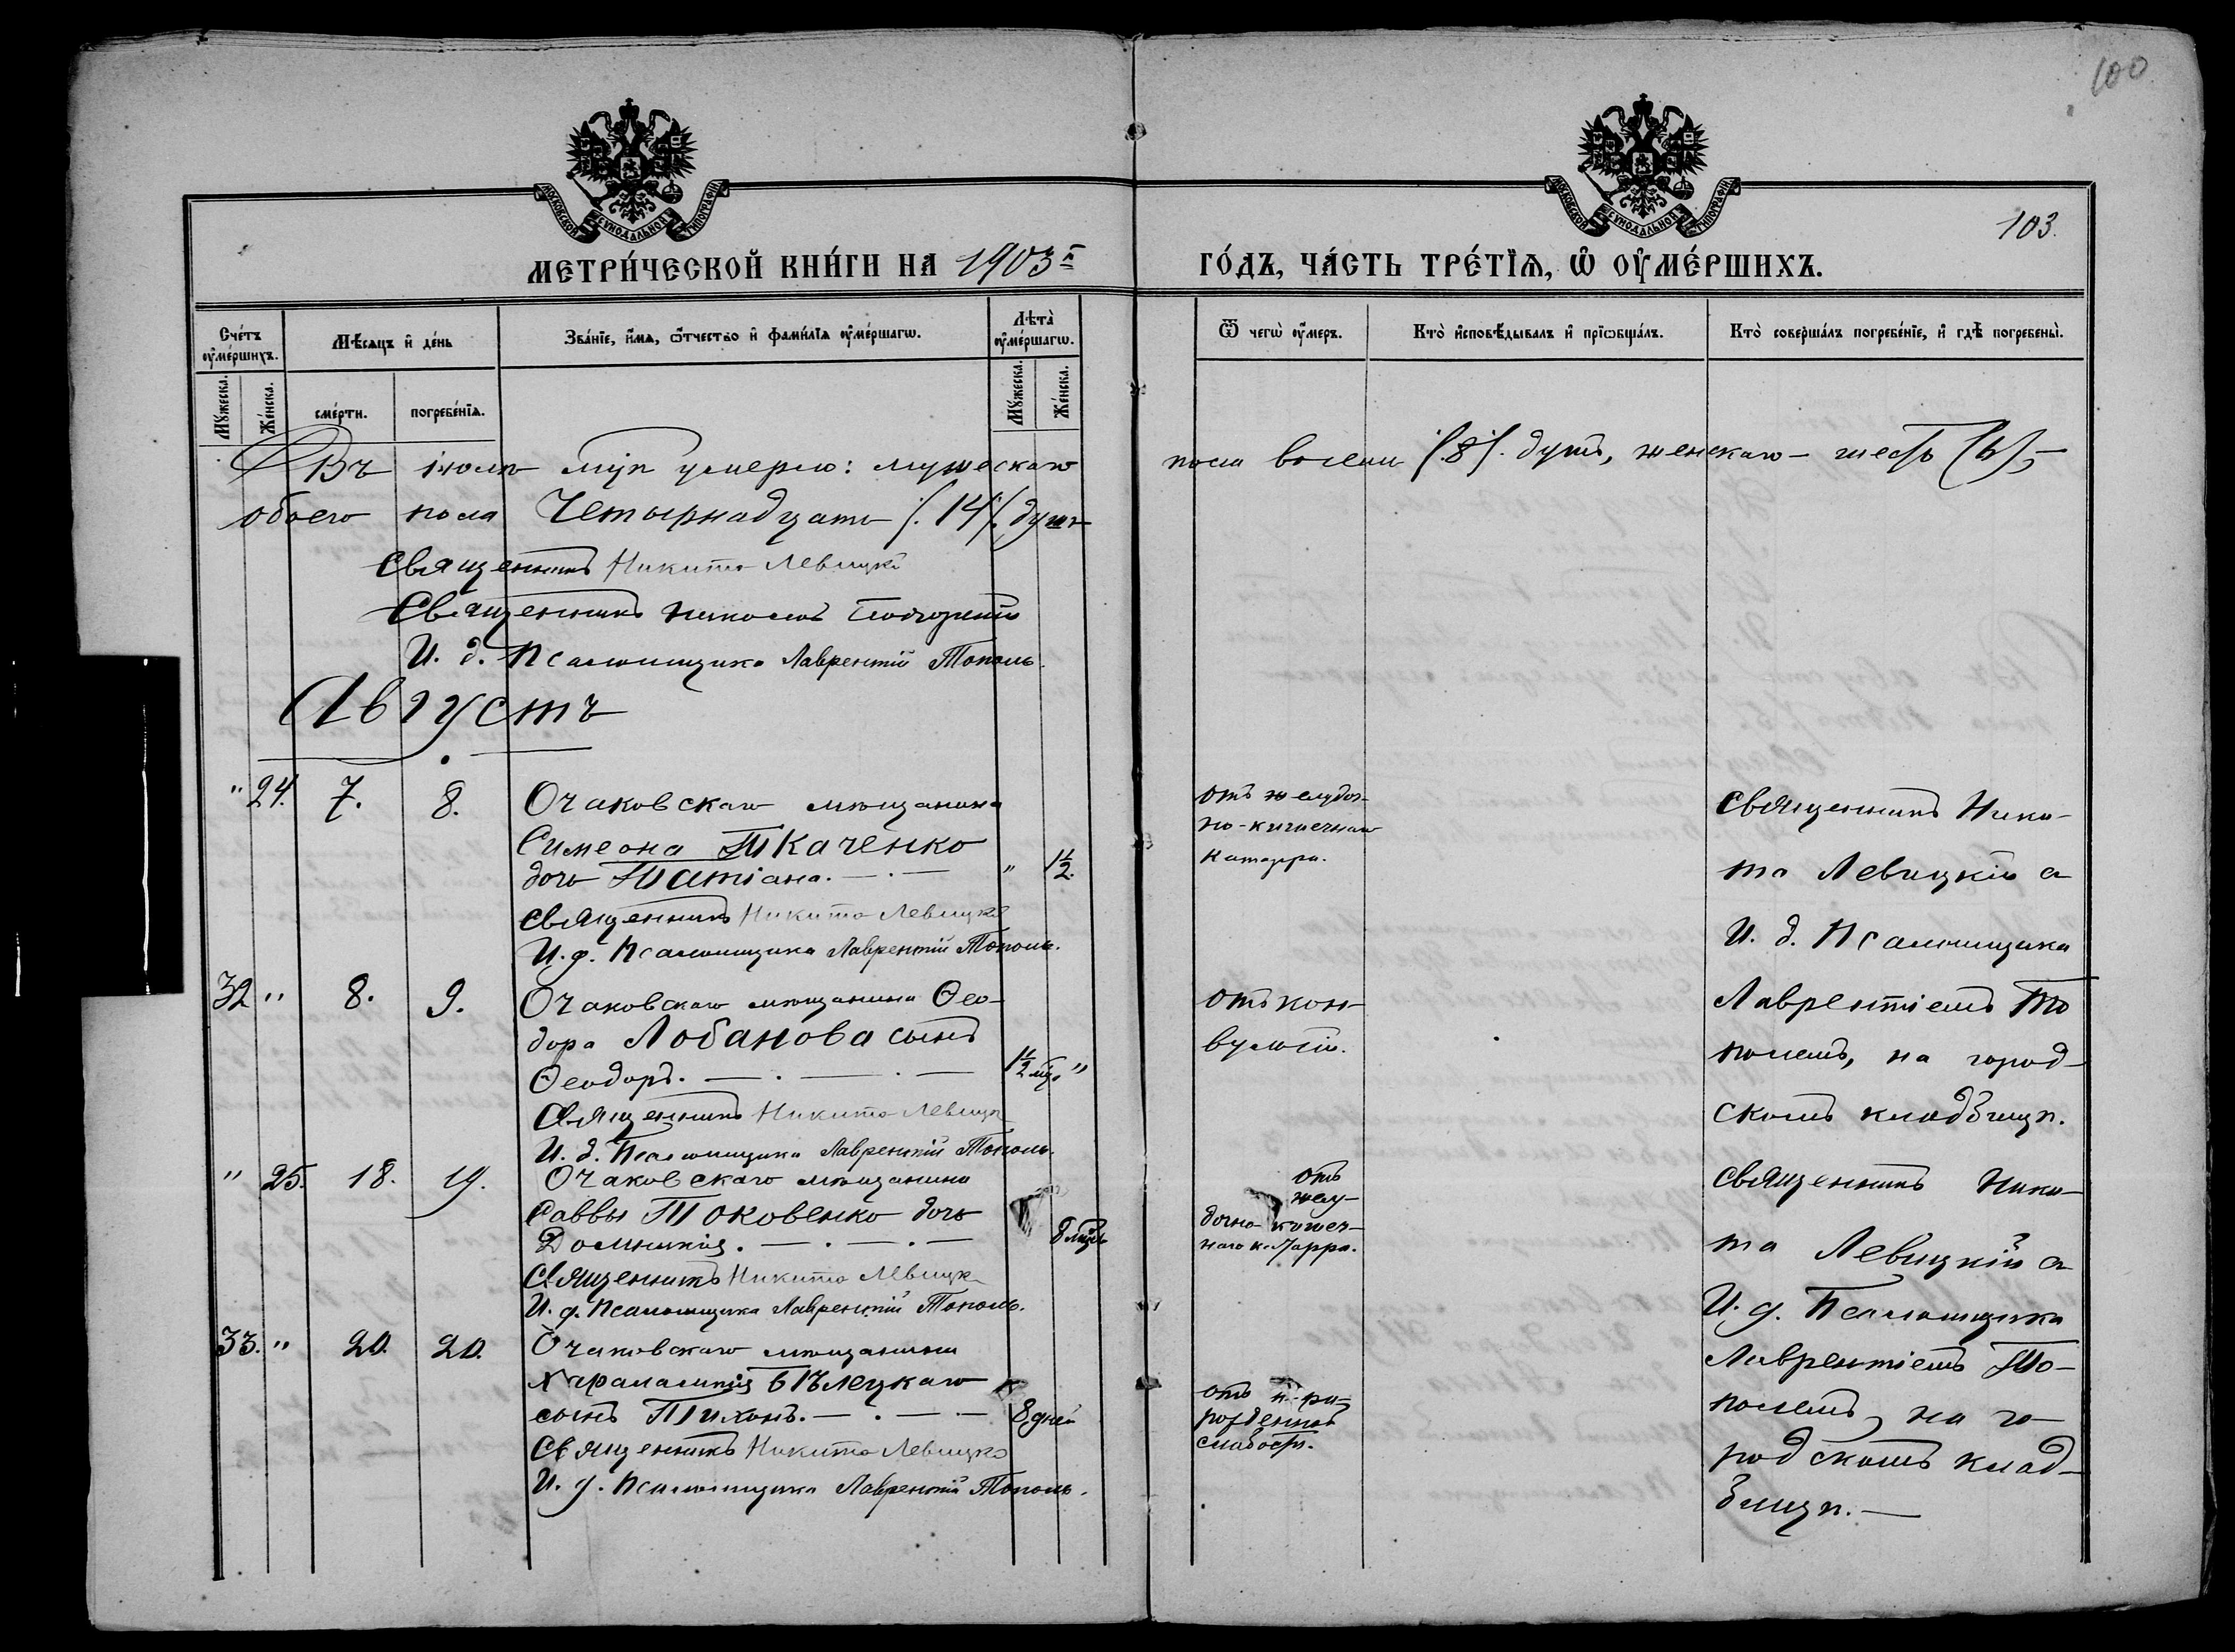 100
103.
МОСКОВСКОЙ СѴНОДАЛЬНОЙ ТИПОГРАФІИ
МОСКОВСКОЙ СѴНОДАЛЬНОЙ ТИПОГРАФІИ
МЕТРИ́ЧЕСКОЙ КНИ́ГИ НА 1903й
ГО́ДЪ, ЧА́СТЬ ТРЕ́ТЇѦ, Ѡ҆ ОУ҆МЕ́РШИХЪ.
Сче́тъ оу҆ме́ршихъ.
Мѣ́сѧцъ и҆ де́нь
Зва́нїе, и҆́мѧ, ѻ҆́тчество и҆ фами́лїѧ оу҆ме́ршагѡ.
Лѣта̀ оу҆ме́ршагѡ.
Мꙋ́жеска.
Же́нска.
сме́рти.
погребе́нїѧ.
Мꙋ́жеска.
Же́нска.
Ѿ чегѡ̀ оу҆́меръ.
Кто̀ и҆сповѣ́дывалъ и҆ прїѡбща́лъ.
Кто̀ соверша́лъ погребе́нїе, и҆ гдѣ̀ погребены̀.
Въ іюлѣ мцѣ умерло: мужескаго
пола восемь (8). душъ, женскаго – шесть (6),–
обоего пола Четырнадцать (14) душъ
Священникъ Никита Левицкій
Священникъ Николай
И. д. Псаломщика Лаврентій Тополь.
Августъ
" 24. 7. 8. Очаковскаго мѣщанина
Симеона Ткаченко
дочь Татіана. " 1½.
Священникъ Никита Левицкій
И. д. Псаломщика Лаврентій Тополь.
отъ желудоч-
но-кишечнаго
катарра.
Священникъ Ники-
та Левицкій с
И. д. Псаломщика
Лаврентіемъ То
полемъ, на город-
скомъ кладбищѣ.
32 " 8. 9. Очаковскаго мѣщанина Ѳео-
дора Лобанова сынъ
Ѳеодоръ. 1½ мц. "
Священникъ Никита Левицк
И. д. Псаломщика Лаврентій Тополь.
отъ кон-
вульсій.
" 25. 18. 19. Очаковскаго мѣщанина
Саввы Токовенко дочь
Домникія. 8 мцвъ
Священникъ Никита Левицк
И. д. Псаломщика Лаврентій Тополь.
отъ
желу-
дочно-кишеч-
наго катарра.
Священникъ Ники-
та Левицкій с
И. д. Псаломщика
Лаврентіемъ То-
полемъ, на го-
родскомъ клад-
бищѣ.–
33. " 20. 20. Очаковскаго мѣщанина
Харалампія Бѣлецкаго
сынъ Тихонъ. 8 дней
Священникъ Никита Левицкій
И. д. Псаломщика Лаврентій Тополь.
отъ при-
рожденной
слабости.